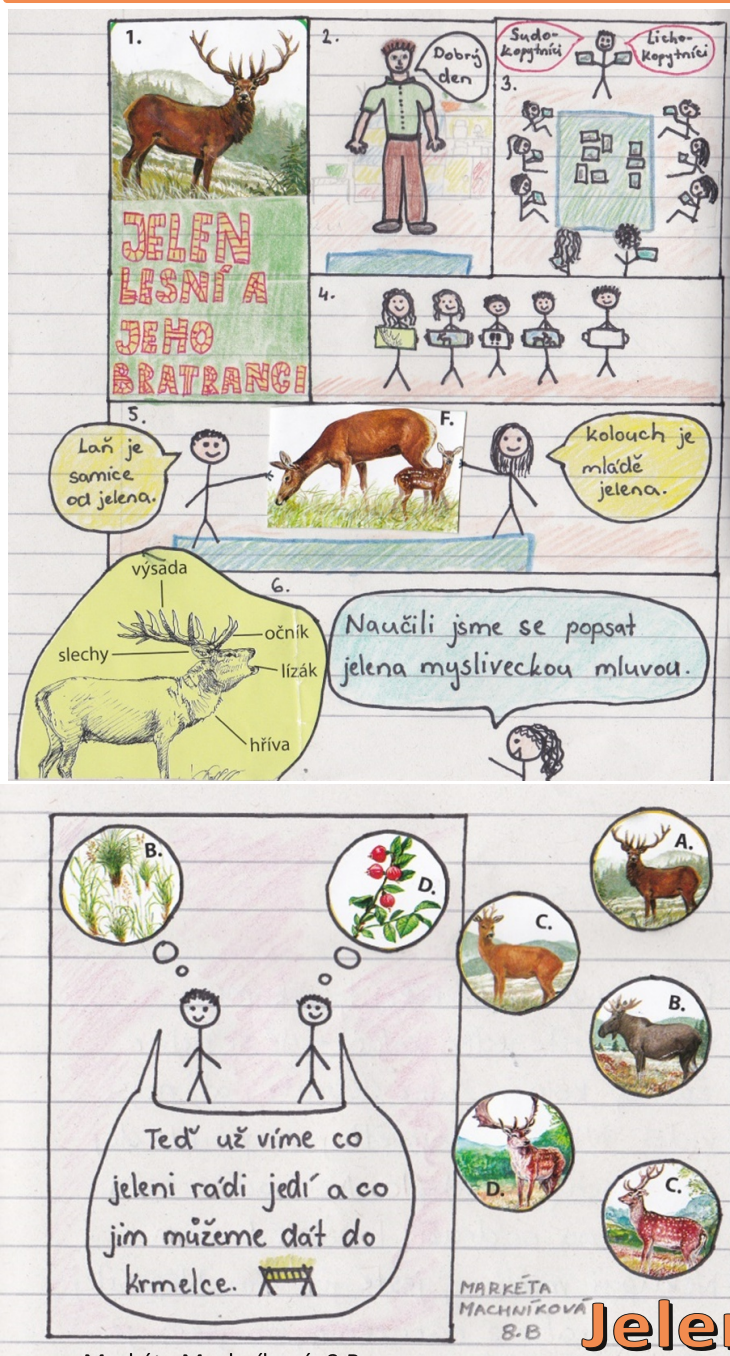 1.
JELEN
LESNÍ A
JEHO
BRATRANCI
2.
Dobrý
den
Sudo-
kopytníci
Licho-
kopytníci
3.
4.
5.
Laň je
samice
od jelena.
F.
kolouch je
mládě
jelena.
6.
výsada
očník
slechy
lízák
hříva
Naučili jsme se popsat
jelena mysliveckou mluvou.
B.
D.
Teď už víme co
jeleni rádi jedí a co
jim můžeme dát do
krmelce.
A.
C.
B.
D.
C.
MARKÉTA
MACHNÍKOVÁ
8.B
Jele